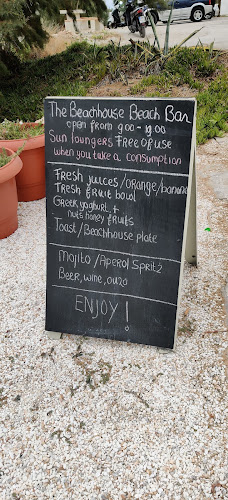 The Beachhouse Beach Bar
open from 9oo - 19oo
Sun loungers Free of use
when you take a consumption
Fresh juices/orange/banana
Fresh fruit bowl
Greek yoghurt +
nuts honey fruits
Toast/Beachhouse plate
Mojito/Aperol Spritz
Beer, wine, ouzo
ENJOY!